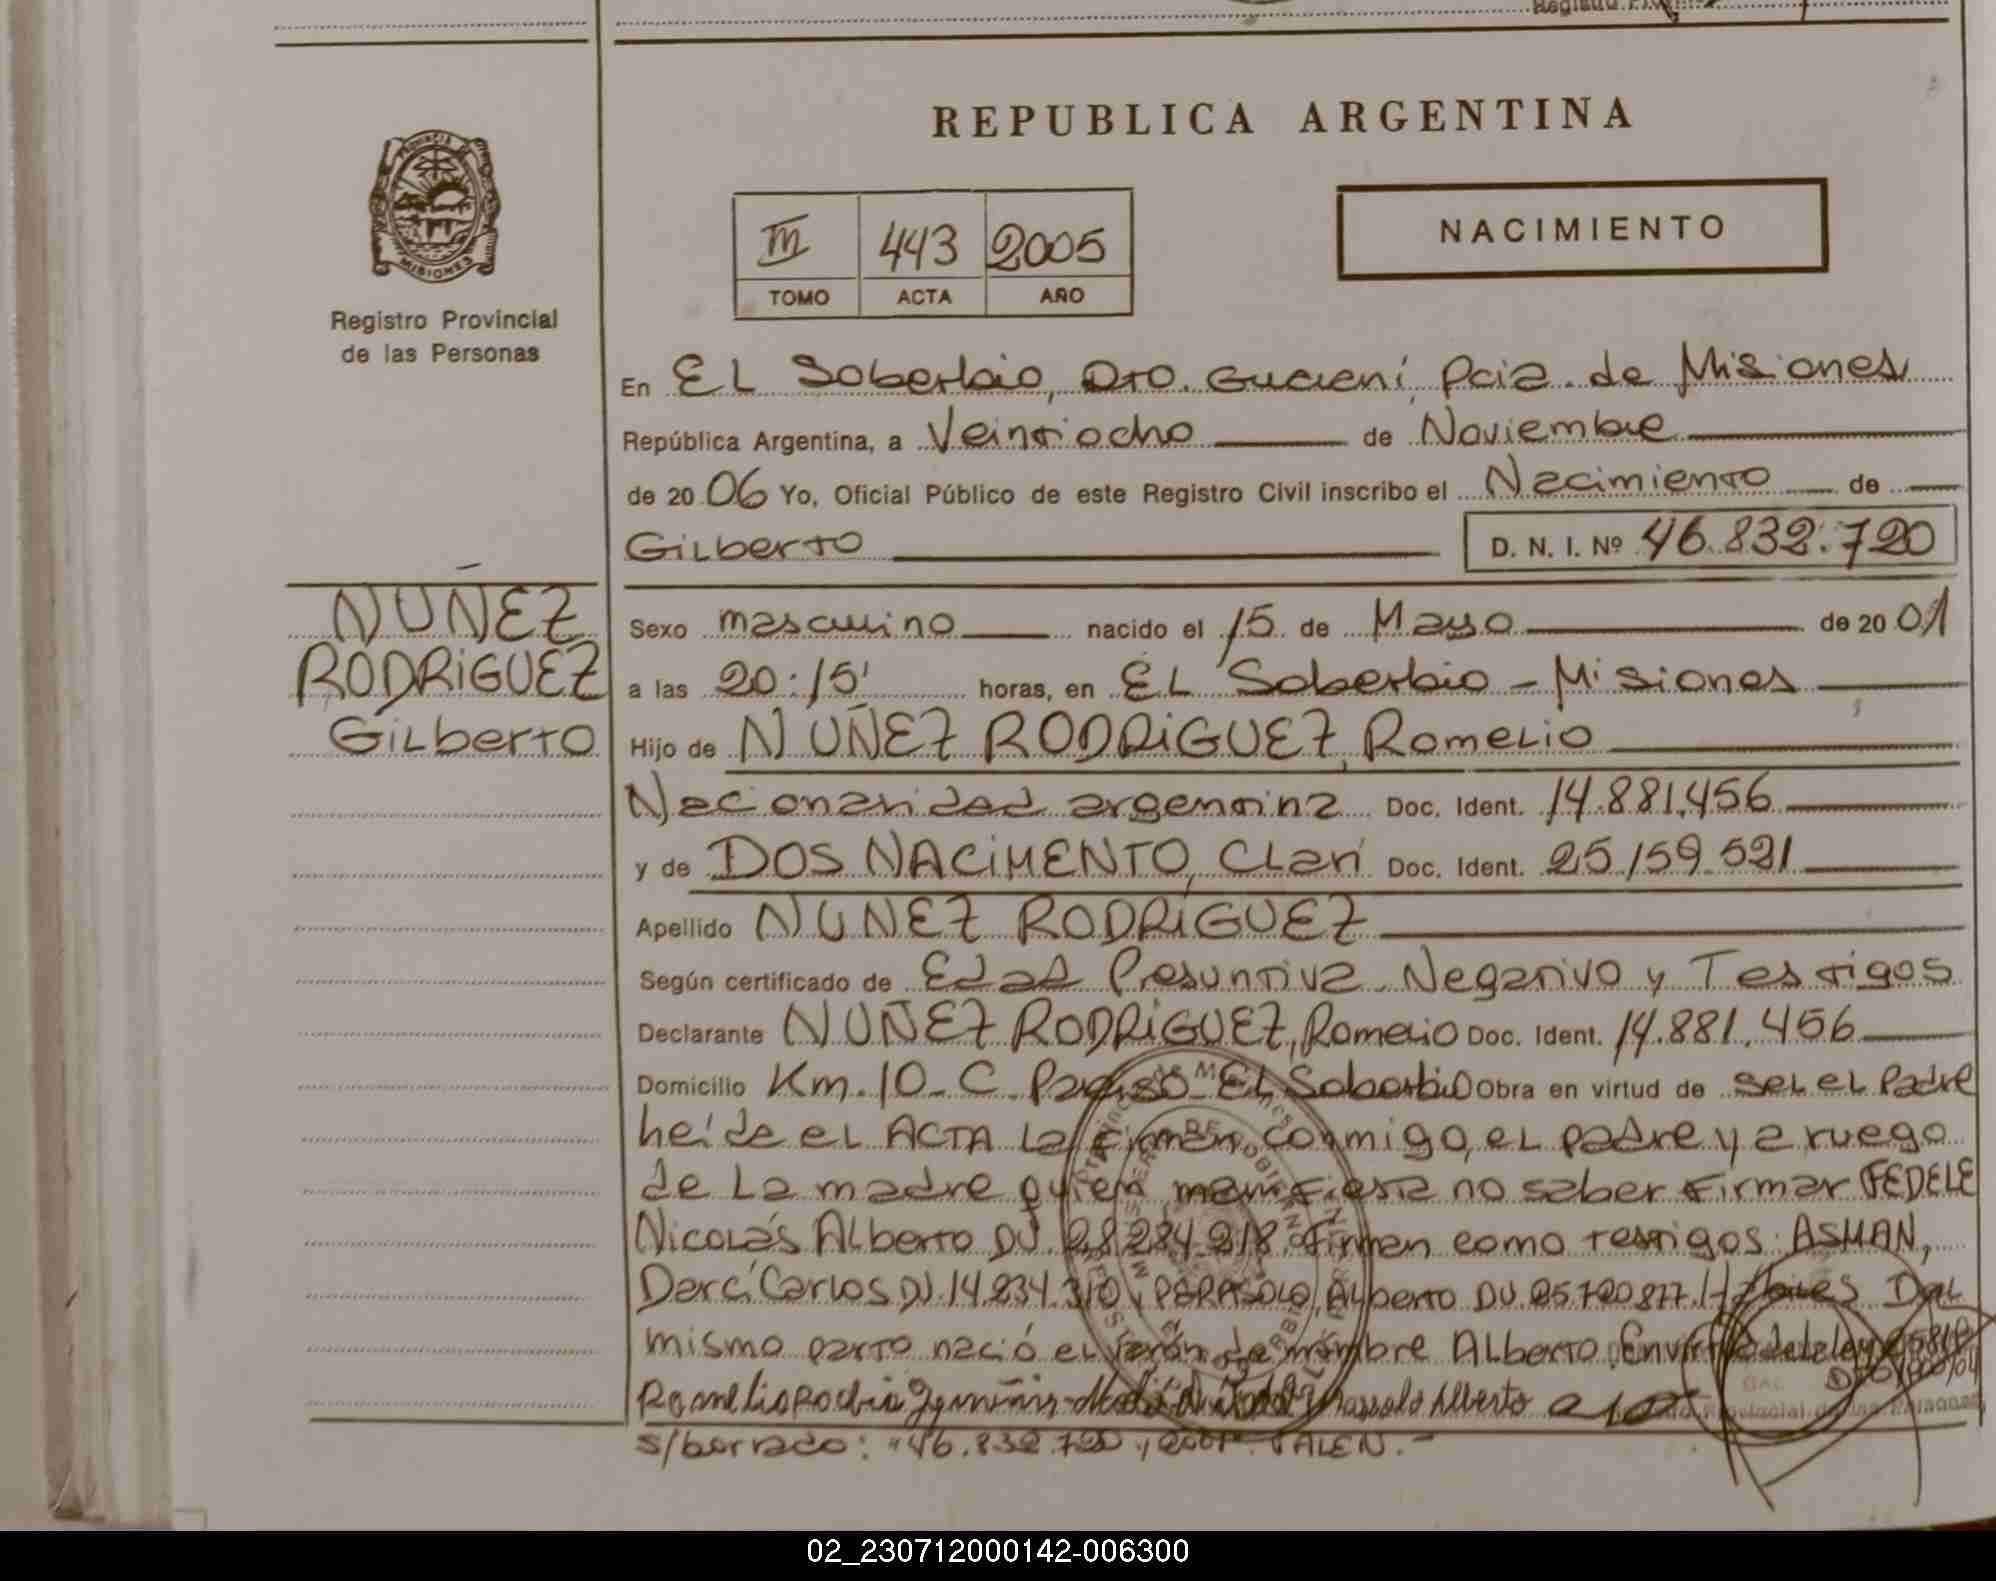 REPUBLICA ARGENTINA
PROVINCIA DE MISIONES
Registro Provincial
de las Personas
III 443 2005
TOMO ACTA AÑO
NACIMIENTO
En EL Soberbio, Dto. Guaraní, Pcia. de Misiones
República Argentina, a Veintiocho de Noviembre
de 2006 Yo, Oficial Público de este Registro Civil inscribo el Nacimiento de
Gilberto D. N. I. Nº 46.832.720
NUÑEZ
RODRIGUEZ
Gilberto
Sexo masculino nacido el 15 de Mayo de 2001
a las 20:15' horas, en EL Soberbio - Misiones
Hijo de NUÑEZ RODRIGUEZ, Romelio
Nacionalidad argentina Doc. Ident. 14.881.456
y de DOS NACIMENTO, Clarí Doc. Ident. 25.159.521
Apellido NUNEZ RODRIGUEZ
Según certificado de Edad Presuntiva Negativo y Testigos
Declarante NUÑEZ RODRIGUEZ, Romelio Doc. Ident. 14.881.456
Domicilio Km. 10 - C. Paraiso - EL Soberbio Obra en virtud de ser el Padre
heída el ACTA la firman conmigo, el padre y a ruego
de la madre quien manifiesta no saber firmar FEDELE
Nicolás Alberto DU. 28.234.218. firman como testigos: ASMAN,
Darcí Carlos DU. 14.234.310 y PERASOLO, Alberto DU. 25.720.877. Hábiles Del
mismo parto nació el varón de nombre Alberto. En virtud de la ley
Alberto
s/borrado: "46.832.720", "2001". VALEN.-
02_230712000142-006300